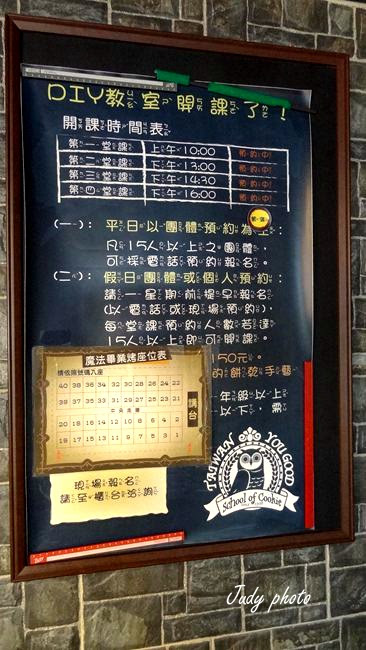 DIY教室開課了!
開課時間表
第一堂課 上午10:00 預約中
第二堂課 下午13:00 預約中
第三堂課 下午14:30 預約中
第四堂課 下午16:00 預約中
(一): 平日以團體預約為主:
凡15人以上之團體。
可採電話預約報名。
(二): 假日團體或個人預約:
請一星期前提早報名
(以電話或現場預約)。
每堂課預約人數若達
15人以上即可開課。
150元。
的餅乾手藝
年級以上
以下,需
魔法畢業烤座位表
請依照號碼入座
40 38 36 34 32 30 28 26 24 22
39 37 35 33 31 29 27 25 23 21
中央走道
20 18 16 14 12 10 8 6 4 2
19 17 15 13 11 9 7 5 3 1
講台
現場報名
請至櫃台洽詢
TAIWAN YOU GOOD
School of Cookie
Judy photo